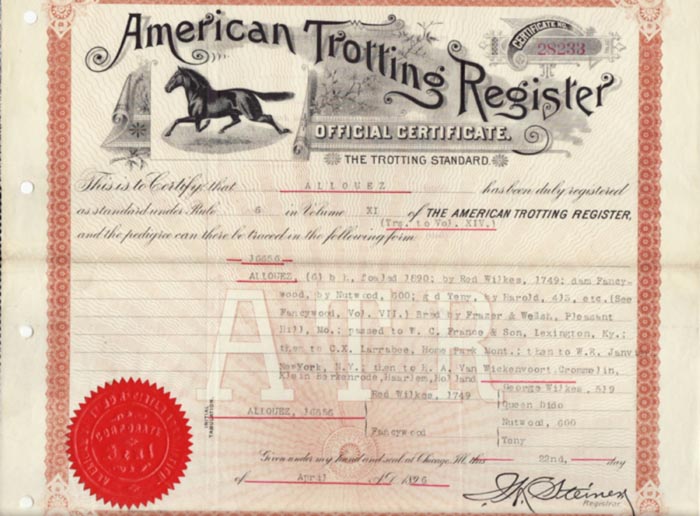 American Trotting Register
CERTIFICATE NO.
28233
OFFICIAL CERTIFICATE.
THE TROTTING STANDARD.
This is to Certify, that ALLOUEZ has been duly registered
as standard under Rule 6 in Volume XI of THE AMERICAN TROTTING REGISTER,
(Trs. to Vol. XIV.)
and the pedigree can there be traced in the following form
16656
ALLOUEZ, (6) b h, foaled 1890; by Red Wilkes, 1749; dam Fancy-
wood, by Nutwood, 600; g d Yeny, by Harold, 413, etc. (See
Fancywood, Vol. VII.) Bred by Frazer & Welsh, Pleasant
Hill, Mo.; passed to W. C. France & Son, Lexington, Ky.;
then to C.X. Larrabee, Home Park Mont.; then to W.R. Janv
NewYork, N.Y.; then to H. A. Van Wickenvoort Crommelin,
Klein Berkenrode, Haarlem, Holland
George Wilkes, 519
Red Wilkes, 1749
Queen Dido
INITIAL
TABULATION.
ALLOUEZ, 16656
Nutwood, 600
Fancywood
Yeny
Given under my hand and seal at Chicago, Ill. this 22nd, day
of April A.D. 1896
J. H. Steiner
Registrar
CORPORATE
SEAL
ATR